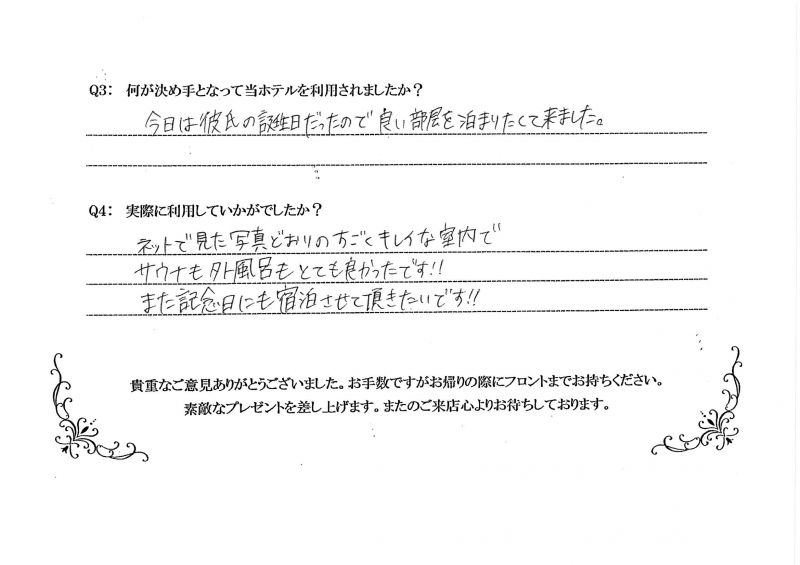 Q3: 何が決め手となって当ホテルを利用されましたか？
今日は彼氏の誕生日だったので良い部屋を泊まりたくて来ました。
Q4: 実際に利用していかがでしたか？
ネットで見た写真どおりのすごくキレイな室内で
サウナも外風呂もとても良かったです!!
また記念日にも宿泊させて頂きたいです!!
貴重なご意見ありがとうございました。お手数ですがお帰りの際にフロントまでお持ちください。
素敵なプレゼントを差し上げます。またのご来店心よりお待ちしております。